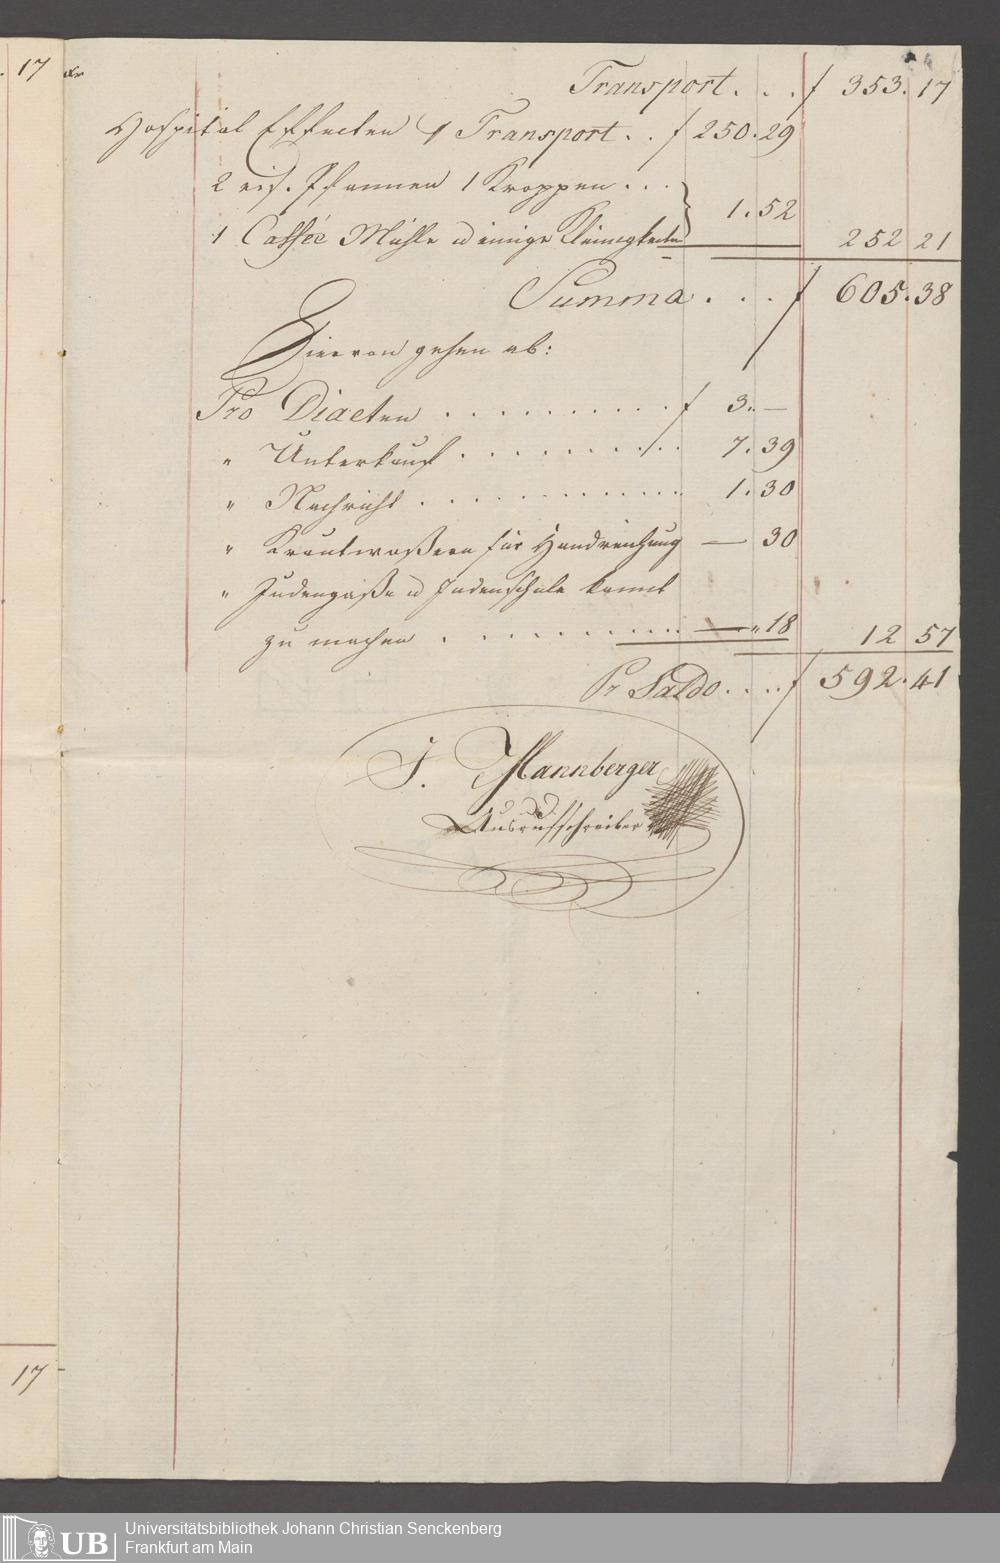 17 xr
Transport . . . f 353. 17
Hospital Effecten Transport . . f 250. 29
2 eis. Pfannen 1 Kroppen . . . 1. 52
1 Caffée Mühle u einige Kleinigkeiten 252 21
Summa . . . f 605. 38
Hiervon gehen ab:
Pro Diaeten . . . . . . . . . . f 3. —
" Unterkauf . . . . . . . . . . 7. 39
" Nachricht . . . . . . . . . . . . . 1. 30
" für Handreichung — 30
" Judengaße u Judenschule kannt
zu machen . . . . . . . . . . — " 18 12 57
Pr Saldo . . . . f 592. 41
J. Mannberger
Ausrufschreiber
17
UB
Universitätsbibliothek Johann Christian Senckenberg
Frankfurt am Main